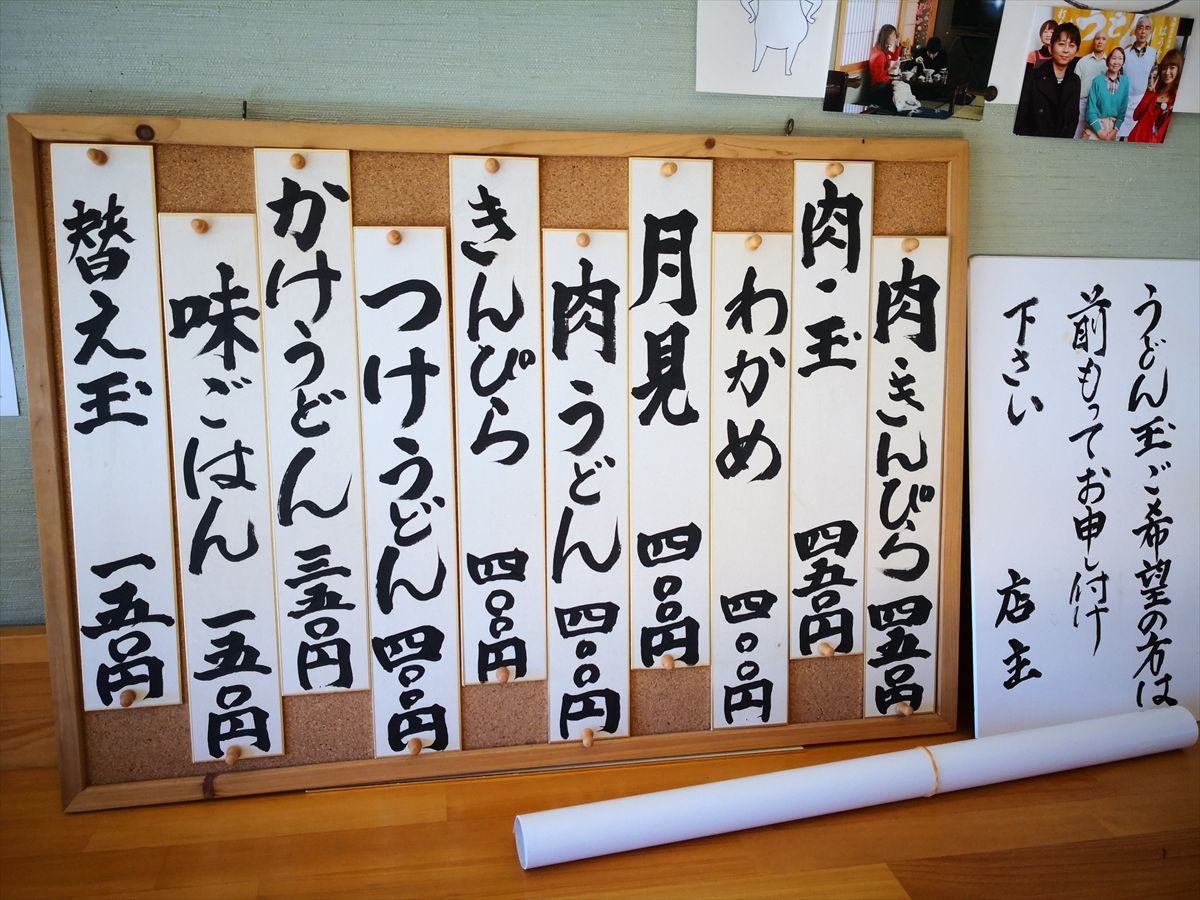 肉・きんぴら 四五〇円
肉・玉 四五〇円
わかめ 四〇〇円
月見 四〇〇円
肉うどん 四〇〇円
きんぴら 四〇〇円
つけうどん 四〇〇円
かけうどん 三五〇円
味ごはん 一五〇円
替え玉 一五〇円
うどん玉ご希望の方は
前もってお申し付け
下さい 店主
うどん